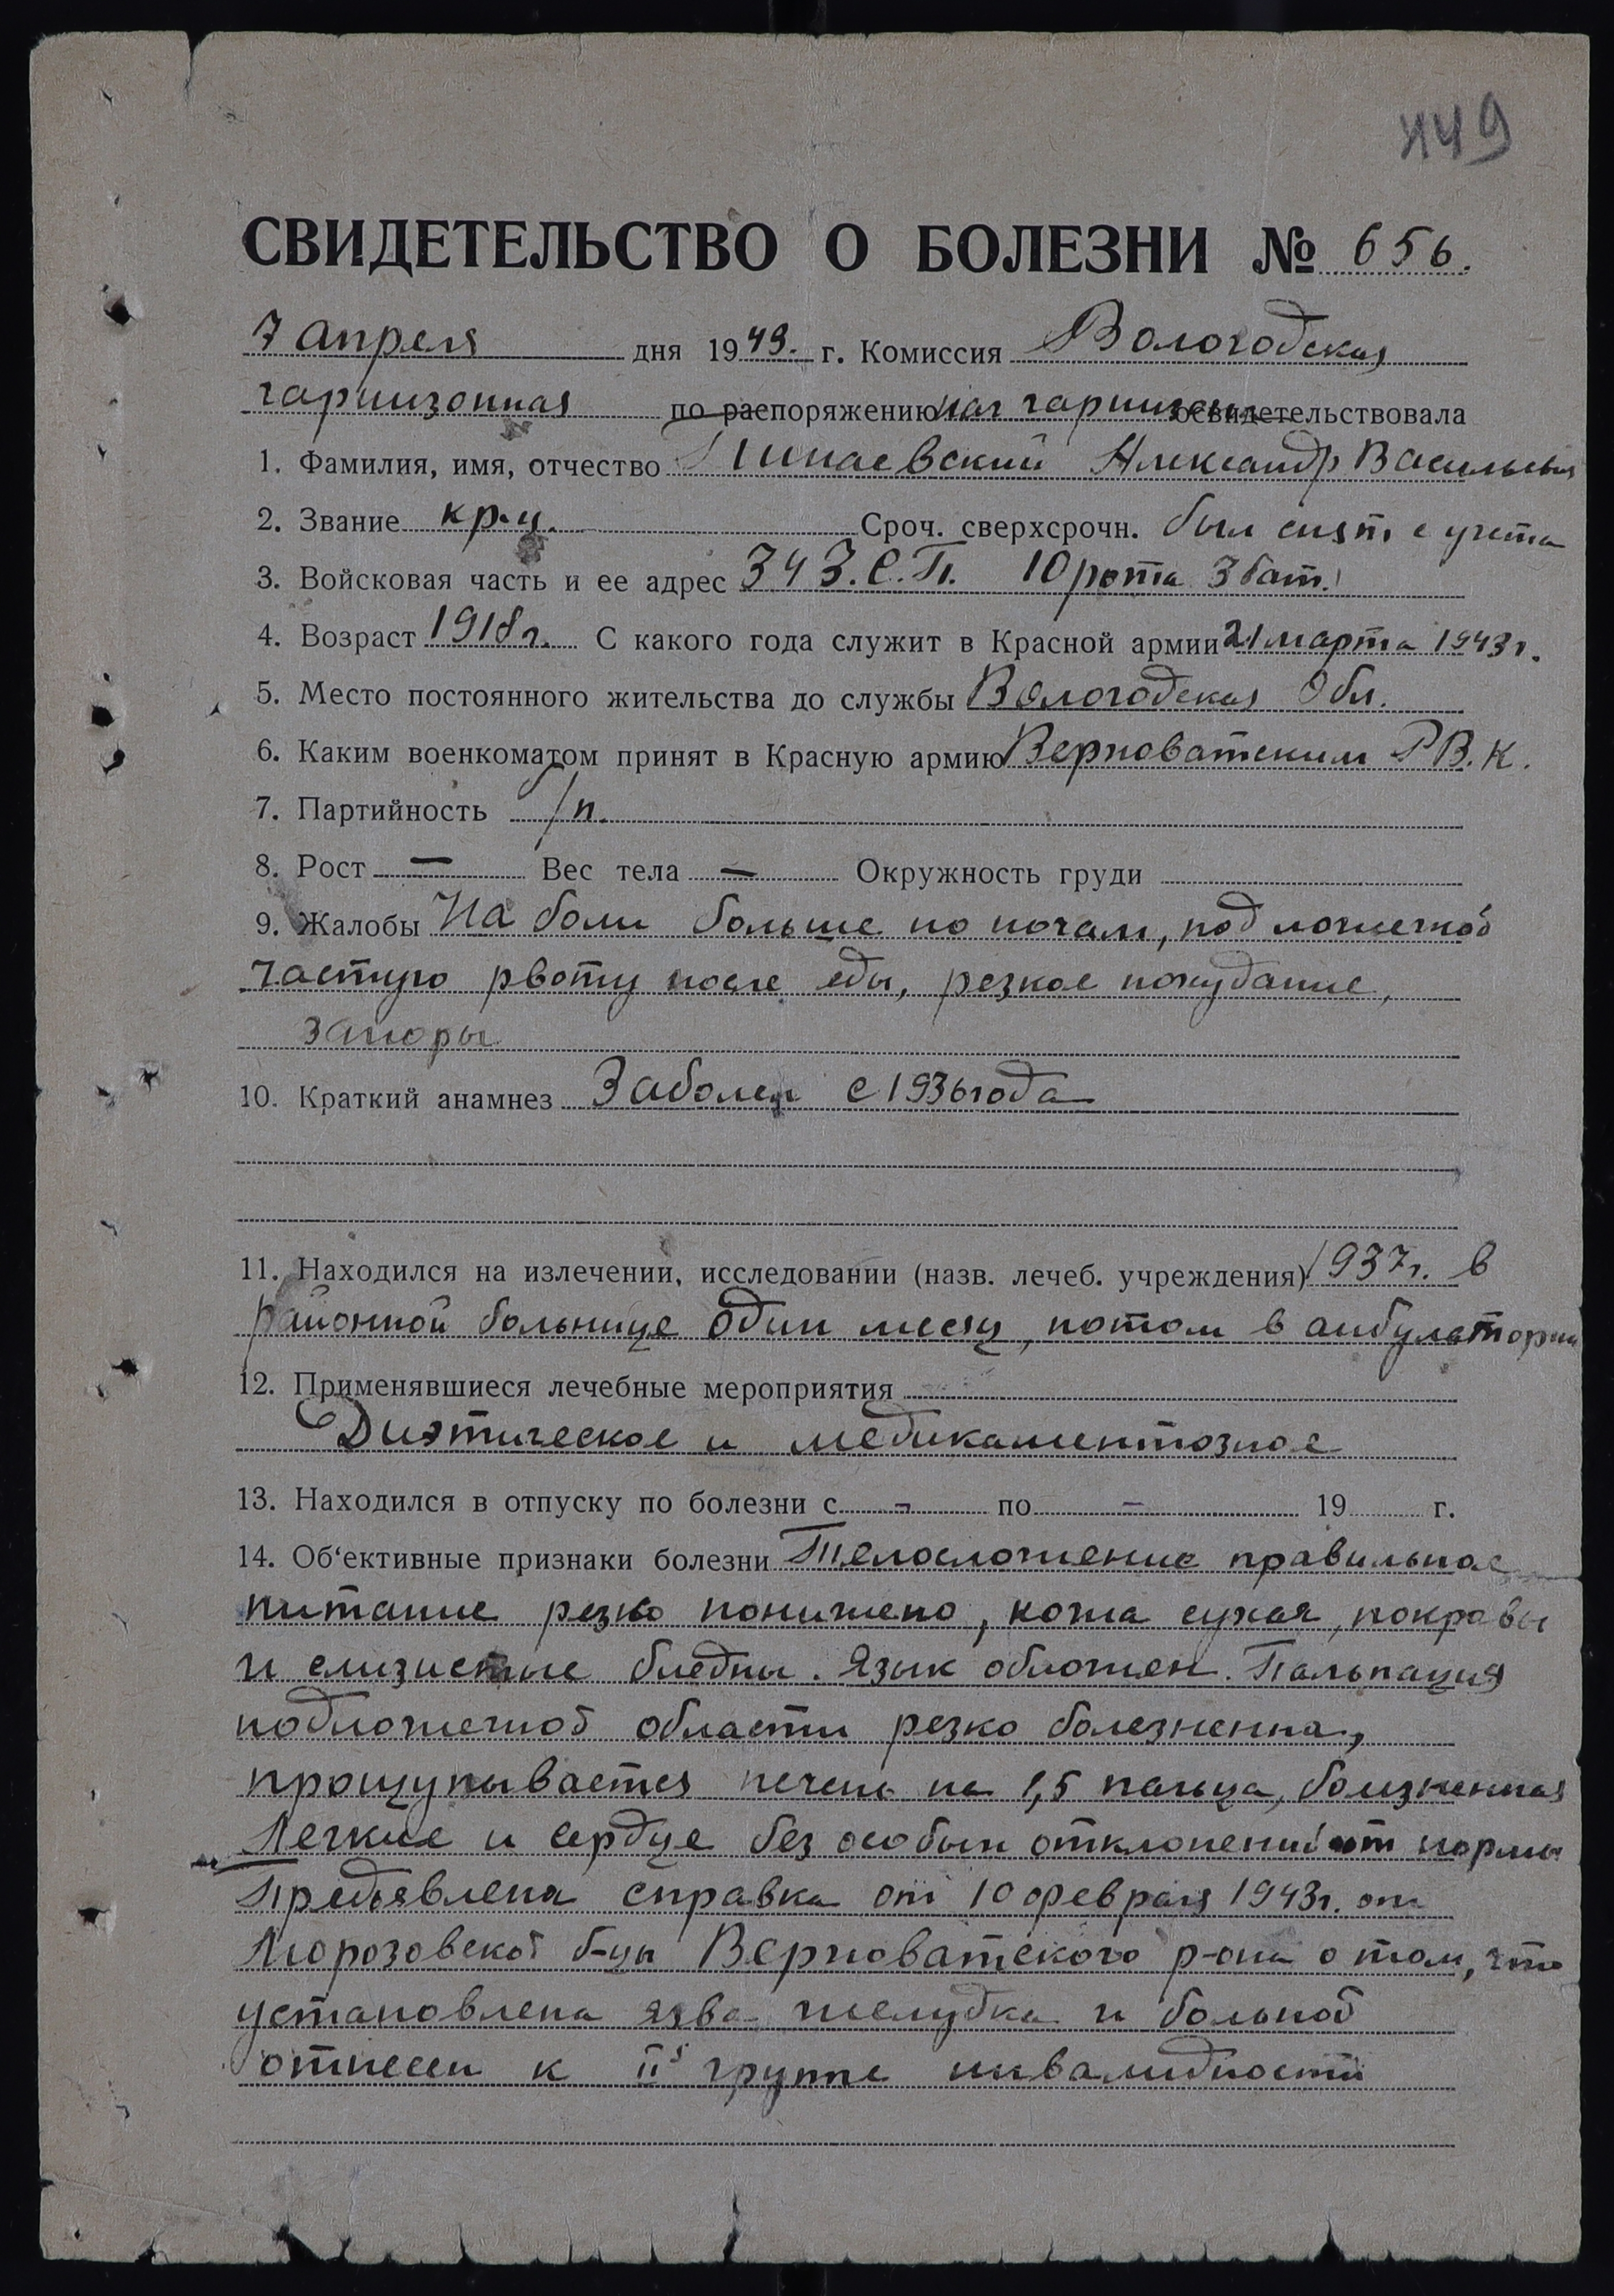 449
СВИДЕТЕЛЬСТВО О БОЛЕЗНИ № 656.
7 апреля дня 1943. г. Комиссия Вологодская
гарнизонная по распоряжению нач гарнизона освидетельствовала
1. Фамилия, имя, отчество Александр Васильевич
2. Звание кр-ц. Сроч. сверхсрочн. был снят с учета
3. Войсковая часть и ее адрес 343. С.П. 10 рота 3 бат.
4. Возраст 1918 г. С какого года служит в Красной армии 21 марта 1943 г.
5. Место постоянного жительства до службы Вологодская Обл.
6. Каким военкоматом принят в Красную армию Верховатским Р.В.К.
7. Партийность б/п.
8. Рост — Вес тела — Окружность груди
9. Жалобы На боли больше по ночам, под ложечкой
частую рвоту после еды, резкое похудание,
запоры
10. Краткий анамнез Болен с 1936 года
11. Находился на излечении, исследовании (назв. лечеб. учреждения) 1937 г. в
районной больнице один месяц, потом в амбулатории
12. Применявшиеся лечебные мероприятия
Диэтическое и медикаментозное
13. Находился в отпуску по болезни с - по - 19 г.
14. Об‘ективные признаки болезни Телосложение правильное
питание резко понижено, кожа сухая, покровы
и слизистые бледны. Язык обложен. Пальпация
подложечной области резко болезненна,
прощупывается печень на 1,5 пальца, болезненная
Легкие и сердце без особых отклонений от нормы
Предъявлена справка от 10 февраля 1943 г. от
Морозовской б-цы Верховатского р-она о том, что
установлена язва желудка и больной
отнесен к II й группе инвалидности